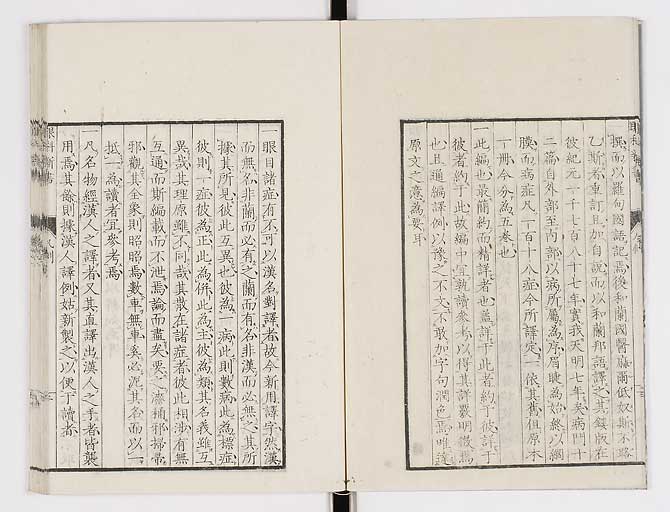 撰而以羅甸國語記焉後和蘭國醫
乙斯者重訂且加自説而以和蘭邦語譯之其鏤版在
彼紀元一千七百八十七年實我天明七年矣病門十
二篇自外部至内部以病所屬為序眉睫為始終以網
膜而病症凡一百十八症今所譯定一依其舊但原本
一冊今分為五巻也
一此編也最簡約而精詳者也蓋詳于此者約于彼詳于
彼者約于此故編中宜熟讀參考以得其詳嚴明徴焉
也且通編譯例以務之不文不敢加字句潤色焉唯
原文之意為要耳
一眼目諸症有不可以漢名對譯者故今新用譯字然漢
而無名非蘭而必有之蘭而有名非漢而必無之其所
據其所見彼此互異也彼為一病此則數病此為標症
彼則一症彼為正此為併此為主彼為類其名義雖互
異哉其理原雖不同哉其散在諸症者彼此相渉有無
互通而斯編載而不泄焉論而盡矣要之
邪觀其全象則昭昭焉數車無車矣必泥其名而以一
抵一為讀者宜參考焉
一凡名物經漢人之譯者又其直譯出漢人之手者皆襲
用焉其餘則據漢人譯例姑新製之以便于讀者
眼科新書
凡例